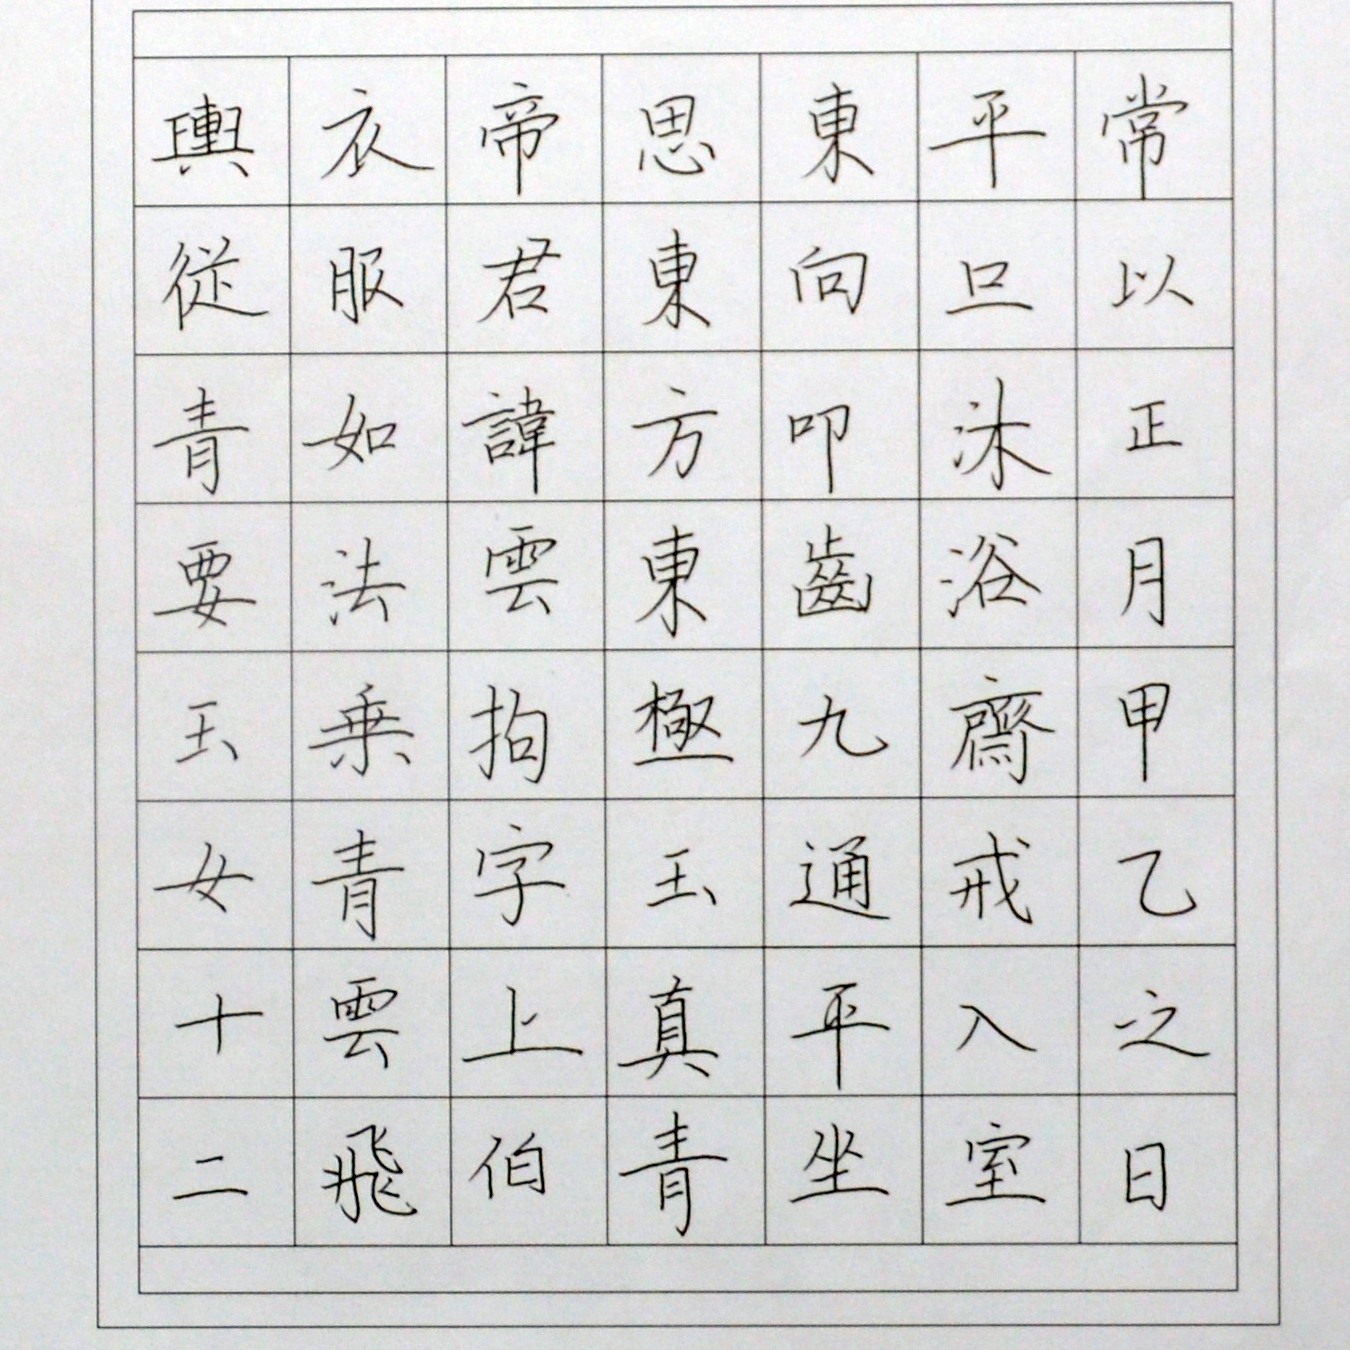 常以正月甲乙之日
平旦沐浴齋戒入室
東向叩齒九通平坐
思東方東極玉真青
帝君諱雲拘字上伯
衣服如法乗青雲飛
輿從青要玉女十二